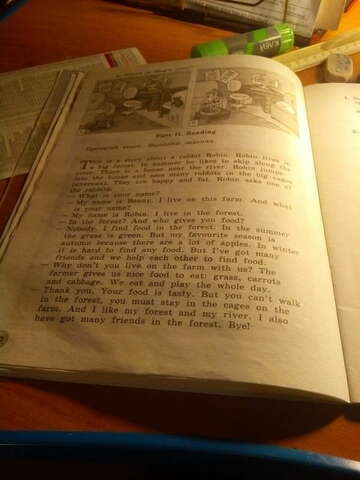 Part II. Reading
Прочитай текст. Выполни задания.
This is a story about a rabbit Robin. Robin lives in
a big forest. In summer he likes to skip along the
river. There is a house near the river. Robin jumps
into the house and sees many rabbits in the big cages
They are happy and fat. Robin asks one of
the rabbits.
— What is your name?
— My name is Benny. I live on this farm. And what
is your name?
— My name is Robin. I live in the forest.
— In the forest? And who gives you food?
— Nobody. I find food in the forest. In the summer
the grass is green. But my favourite season is
autumn because there are a lot of apples. In winter
it is hard to find any food. But I've got many
friends and we help each other to find food.
— Why don't you live on the farm with us? The
farmer gives us nice food to eat: grass, carrots
and cabbage. We eat and play the whole day.
— Thank you. Your food is tasty. But you can't walk
in the forest, you must stay in the cages on the
farm. And I like my forest and my river. I also
have got many friends in the forest. Bye!